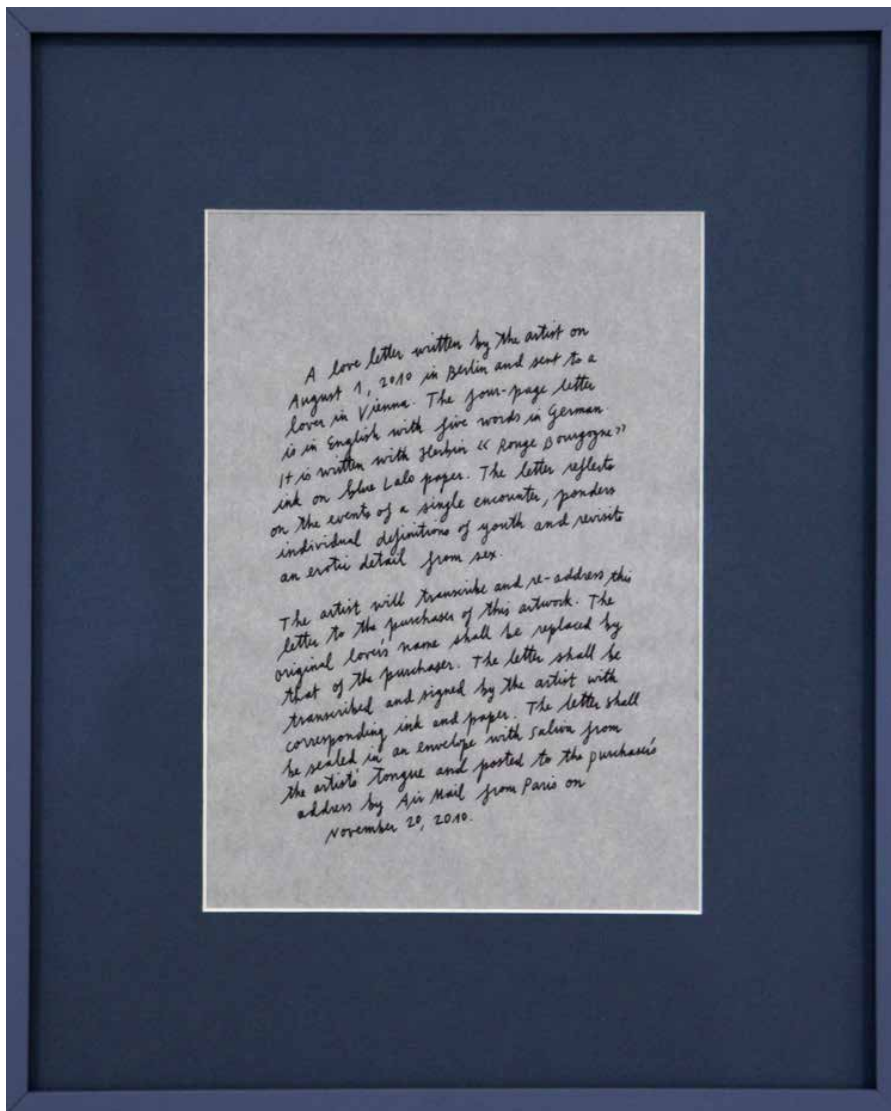 A love letter written by the artist on
August 1, 2010 in Berlin and sent to a
lover in Vienna. The four-page letter
is in English with five words in German.
It is written with Herbin « Rouge Bourgogne »
ink on blue Lalo paper. The letter reflects
on the events of a single encounter, ponders
individual definitions of youth and revisits
an erotic detail from sex.
The artist will transcribe and re-address this
letter to the purchaser of this artwork. The
original lover's name shall be replaced by
that of the purchaser. The letter shall be
transcribed and signed by the artist with
corresponding ink and paper. The letter shall
be sealed in an envelope with saliva from
the artists' tongue and posted to the purchaser's
address by Air Mail from Paris on
November 20, 2010.